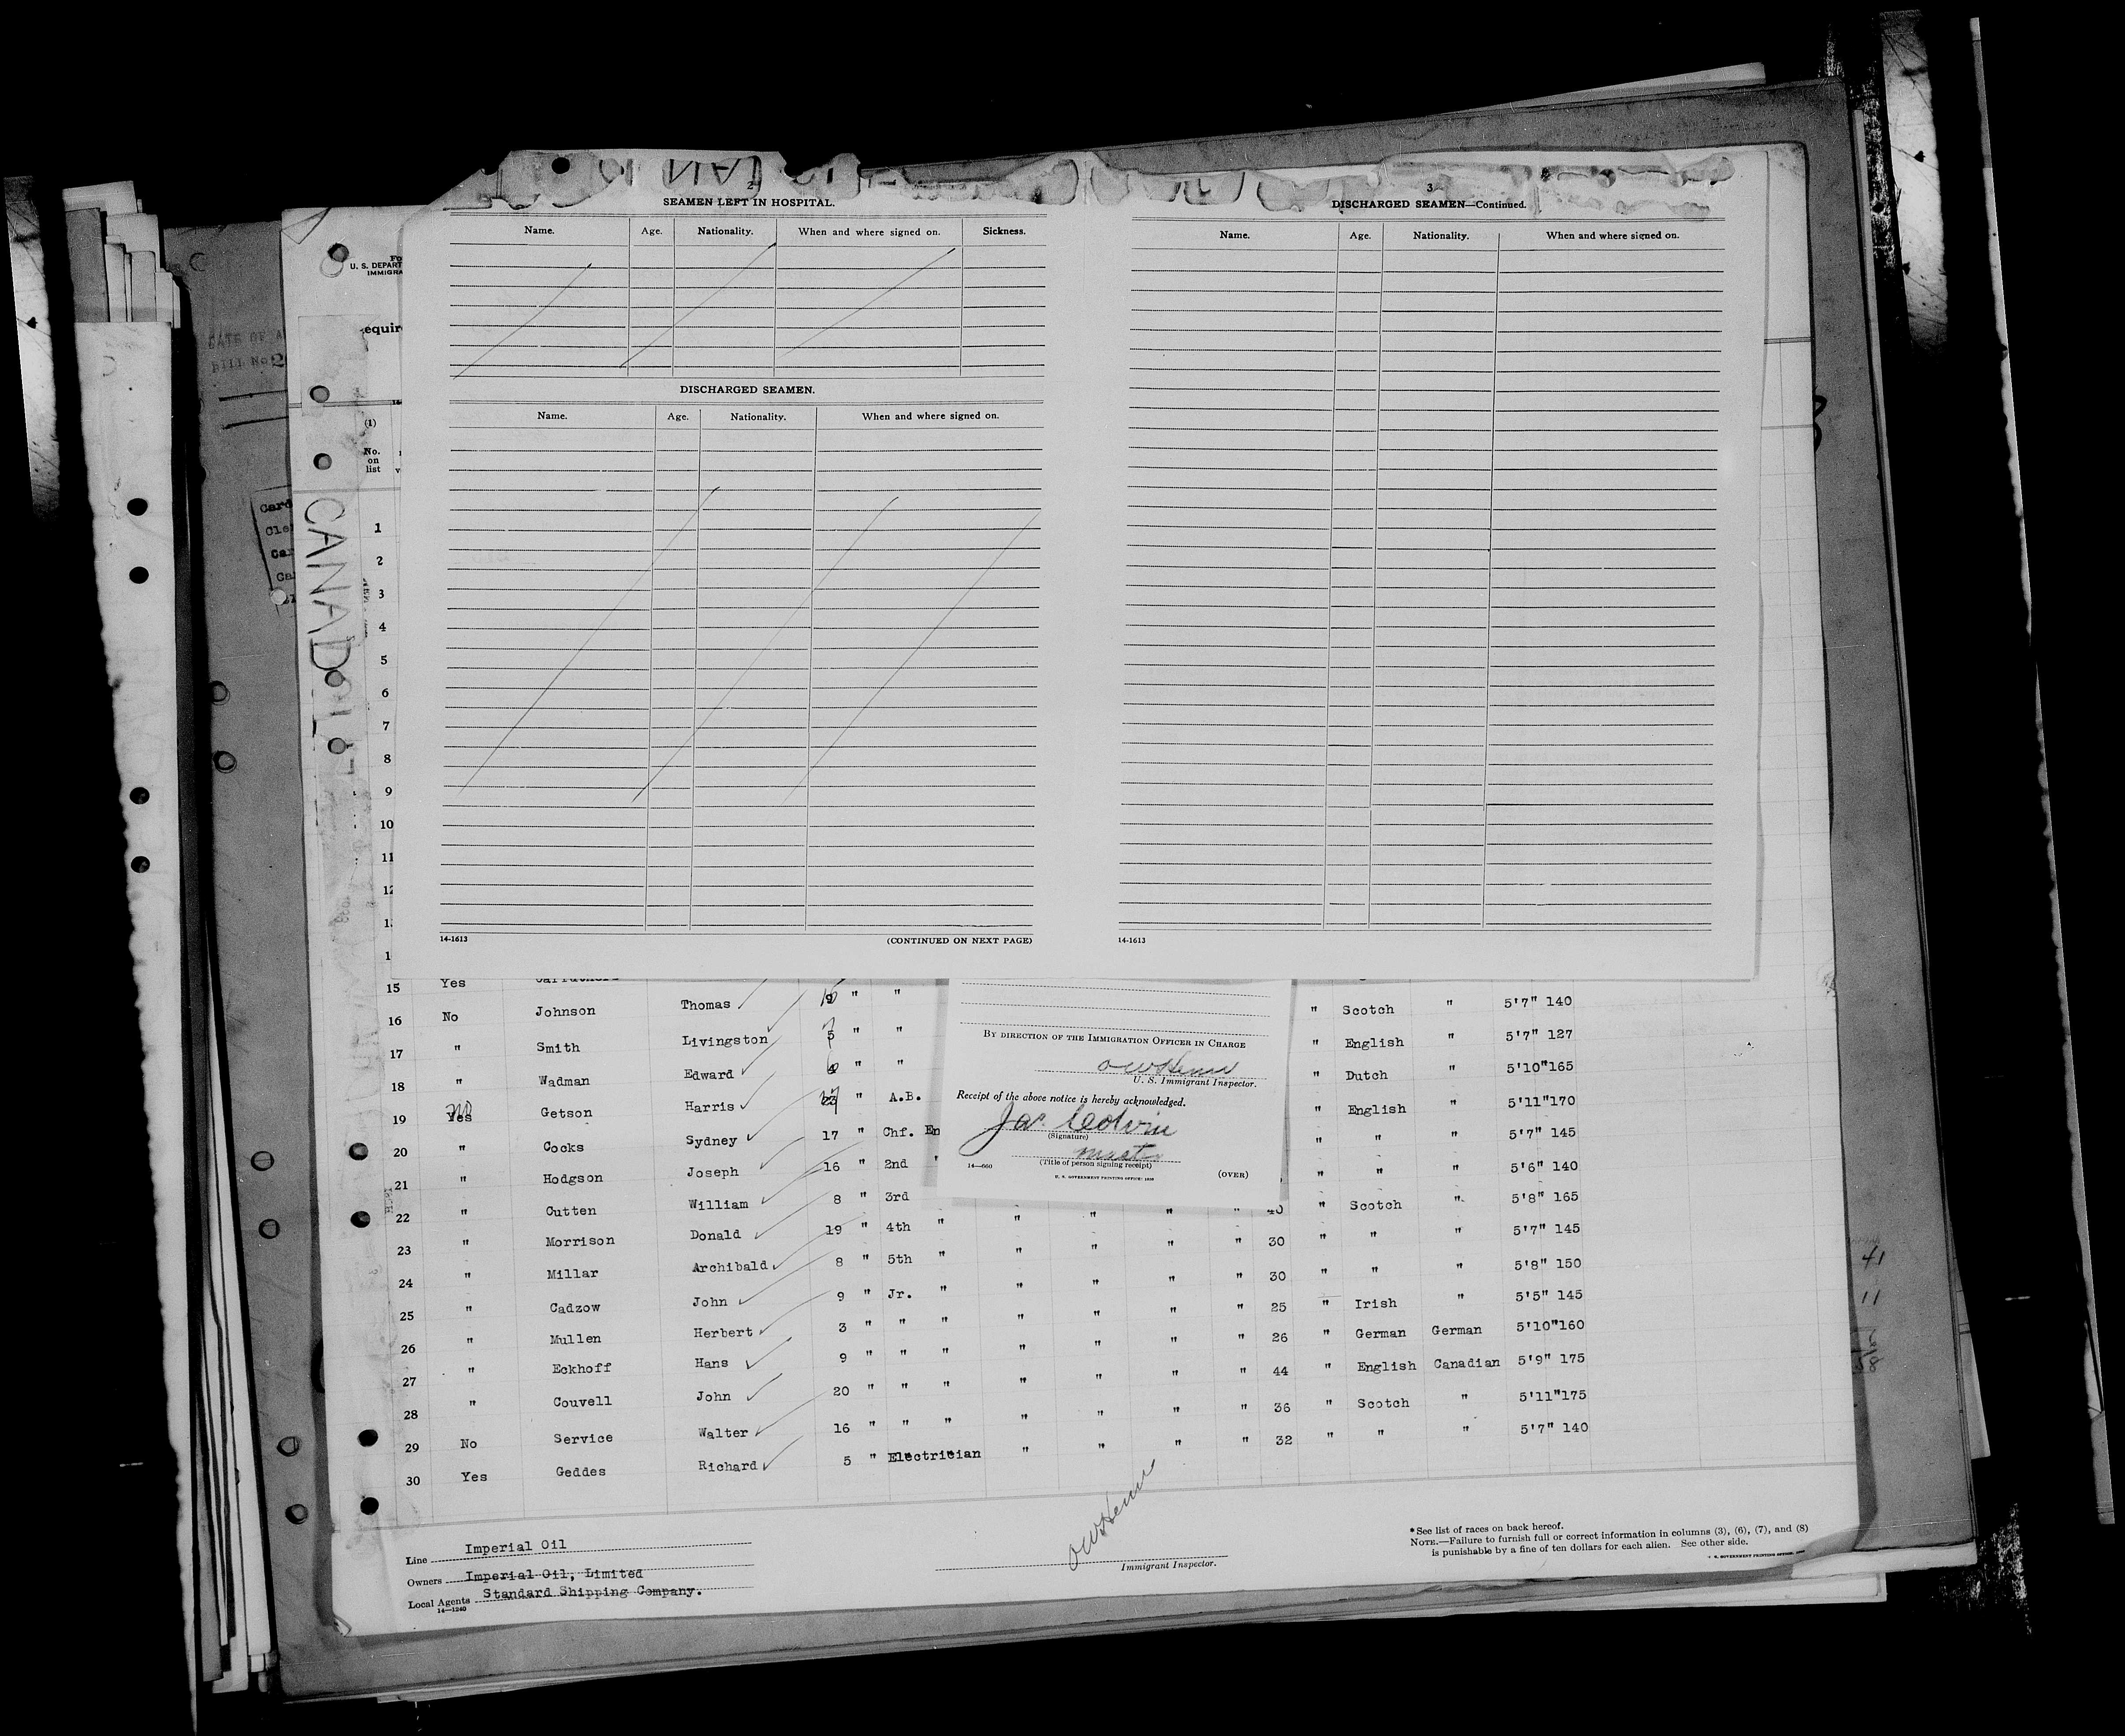 2
SEAMEN LEFT IN HOSPITAL.
Name. Age. Nationality. When and where signed on. Sickness.
DISCHARGED SEAMEN.
Name. Age. Nationality. When and where signed on.
14-1613 (CONTINUED ON NEXT PAGE)
3
DISCHARGED SEAMEN—Continued.
Name. Age. Nationality. When and where signed on.
14-1613
U. S. DEPART
IMMIGRA
equir
DATE OF A
Bill No
(1)
No.
on
list
CANADOL
1
2
3
4
5
6
7
8
9
10
11
12
15 Yes
16 No Johnson Thomas " " " Scotch " 5'7" 140
17 " Smith Livingston 5 " " " English " 5'7" 127
18 " Wadman Edward " " " Dutch " 5'10"165
19 Yes Getson Harris " A.B. " English " 5'11"170
20 " Cocks Sydney 17 " Chf. En " " " 5'7" 145
21 " Hodgson Joseph 16 " 2nd " " " " 5'6" 140
22 " Cutten William 8 " 3rd " " " " 40 " Scotch " 5'8" 165
23 " Morrison Donald 19 " 4th " " " " " 30 " " " 5'7" 145
24 " Millar Archibald 8 " 5th " " " " " 30 " " " 5'8" 150
25 " Cadzow John 9 " Jr. " " " " " 25 " Irish " 5'5" 145
26 " Mullen Herbert 3 " " " " " " " 26 " German German 5'10"160
27 " Eckhoff Hans 9 " " " " " " " 44 " English Canadian 5'9" 175
28 " Couvell John 20 " " " " " " " 36 " Scotch " 5'11"175
29 No Service Walter 16 " " " " " " " 32 " " " 5'7" 140
30 Yes Geddes Richard 5 " Electrician " " "
BY DIRECTION OF THE IMMIGRATION OFFICER IN CHARGE
U. S. Immigrant Inspector.
Receipt of the above notice is hereby acknowledged.
(Signature)
(Title of person signing receipt)
14—660 (OVER)
U. S. GOVERNMENT PRINTING OFFICE
Line Imperial Oil
Owners Imperial Oil, Limited
Local Agents Standard Shipping Company.
14—1240
Immigrant Inspector.
*See list of races on back hereof.
NOTE.—Failure to furnish full or correct information in columns (3), (6), (7), and (8)
is punishable by a fine of ten dollars for each alien. See other side.
U. S. GOVERNMENT PRINTING OFFICE
41
11